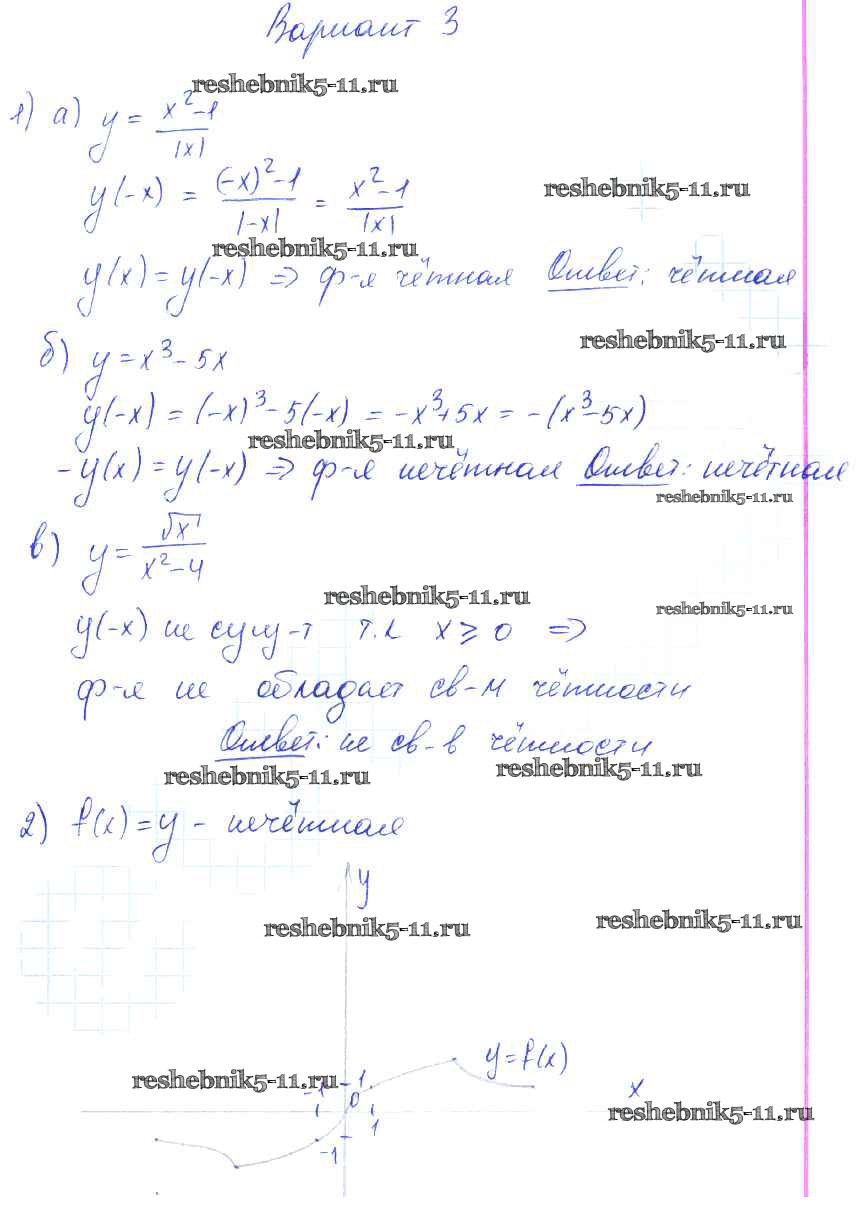 Вариант 3
reshebnik5-11.ru
1) а) y = (x² - 1)/|x|
y(-x) = ((-x)² - 1)/|-x| = (x² - 1)/|x|
reshebnik5-11.ru
reshebnik5-11.ru
y(x) = y(-x) => ф-я чётная Ответ: чётная
reshebnik5-11.ru
б) y = x³ - 5x
y(-x) = (-x)³ - 5(-x) = -x³ + 5x = -(x³ - 5x)
reshebnik5-11.ru
-y(x) = y(-x) => ф-я нечётная Ответ: нечётная
reshebnik5-11.ru
в) y = √x/(x² - 4)
reshebnik5-11.ru
reshebnik5-11.ru
y(-x) не сущ-т т.к x ≥ 0 =>
ф-я не обладает св-м чётности
Ответ: не св-в чётности
reshebnik5-11.ru
reshebnik5-11.ru
2) f(x) = y - нечётная
y
reshebnik5-11.ru
reshebnik5-11.ru
y = f(x)
reshebnik5-11.ru
-1 1
x
0
reshebnik5-11.ru
1
-1